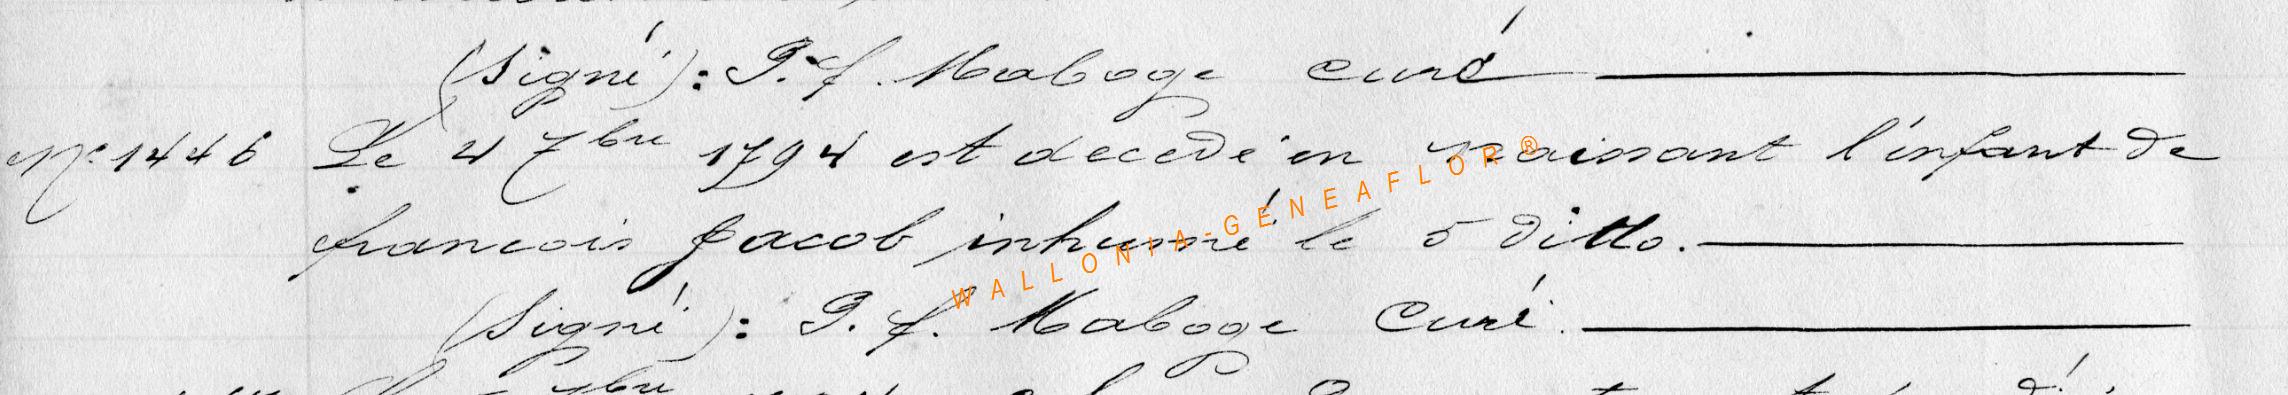 (Signé): P. f. Maboge curé
N° 1446 Le 4 7bre 1794 est decedé en naissant l'enfant de
francois Jacob inhumé le 5 ditto.
WALLONIA-GENEAFLOR®
(Signé): P. f. Maboge Curé.